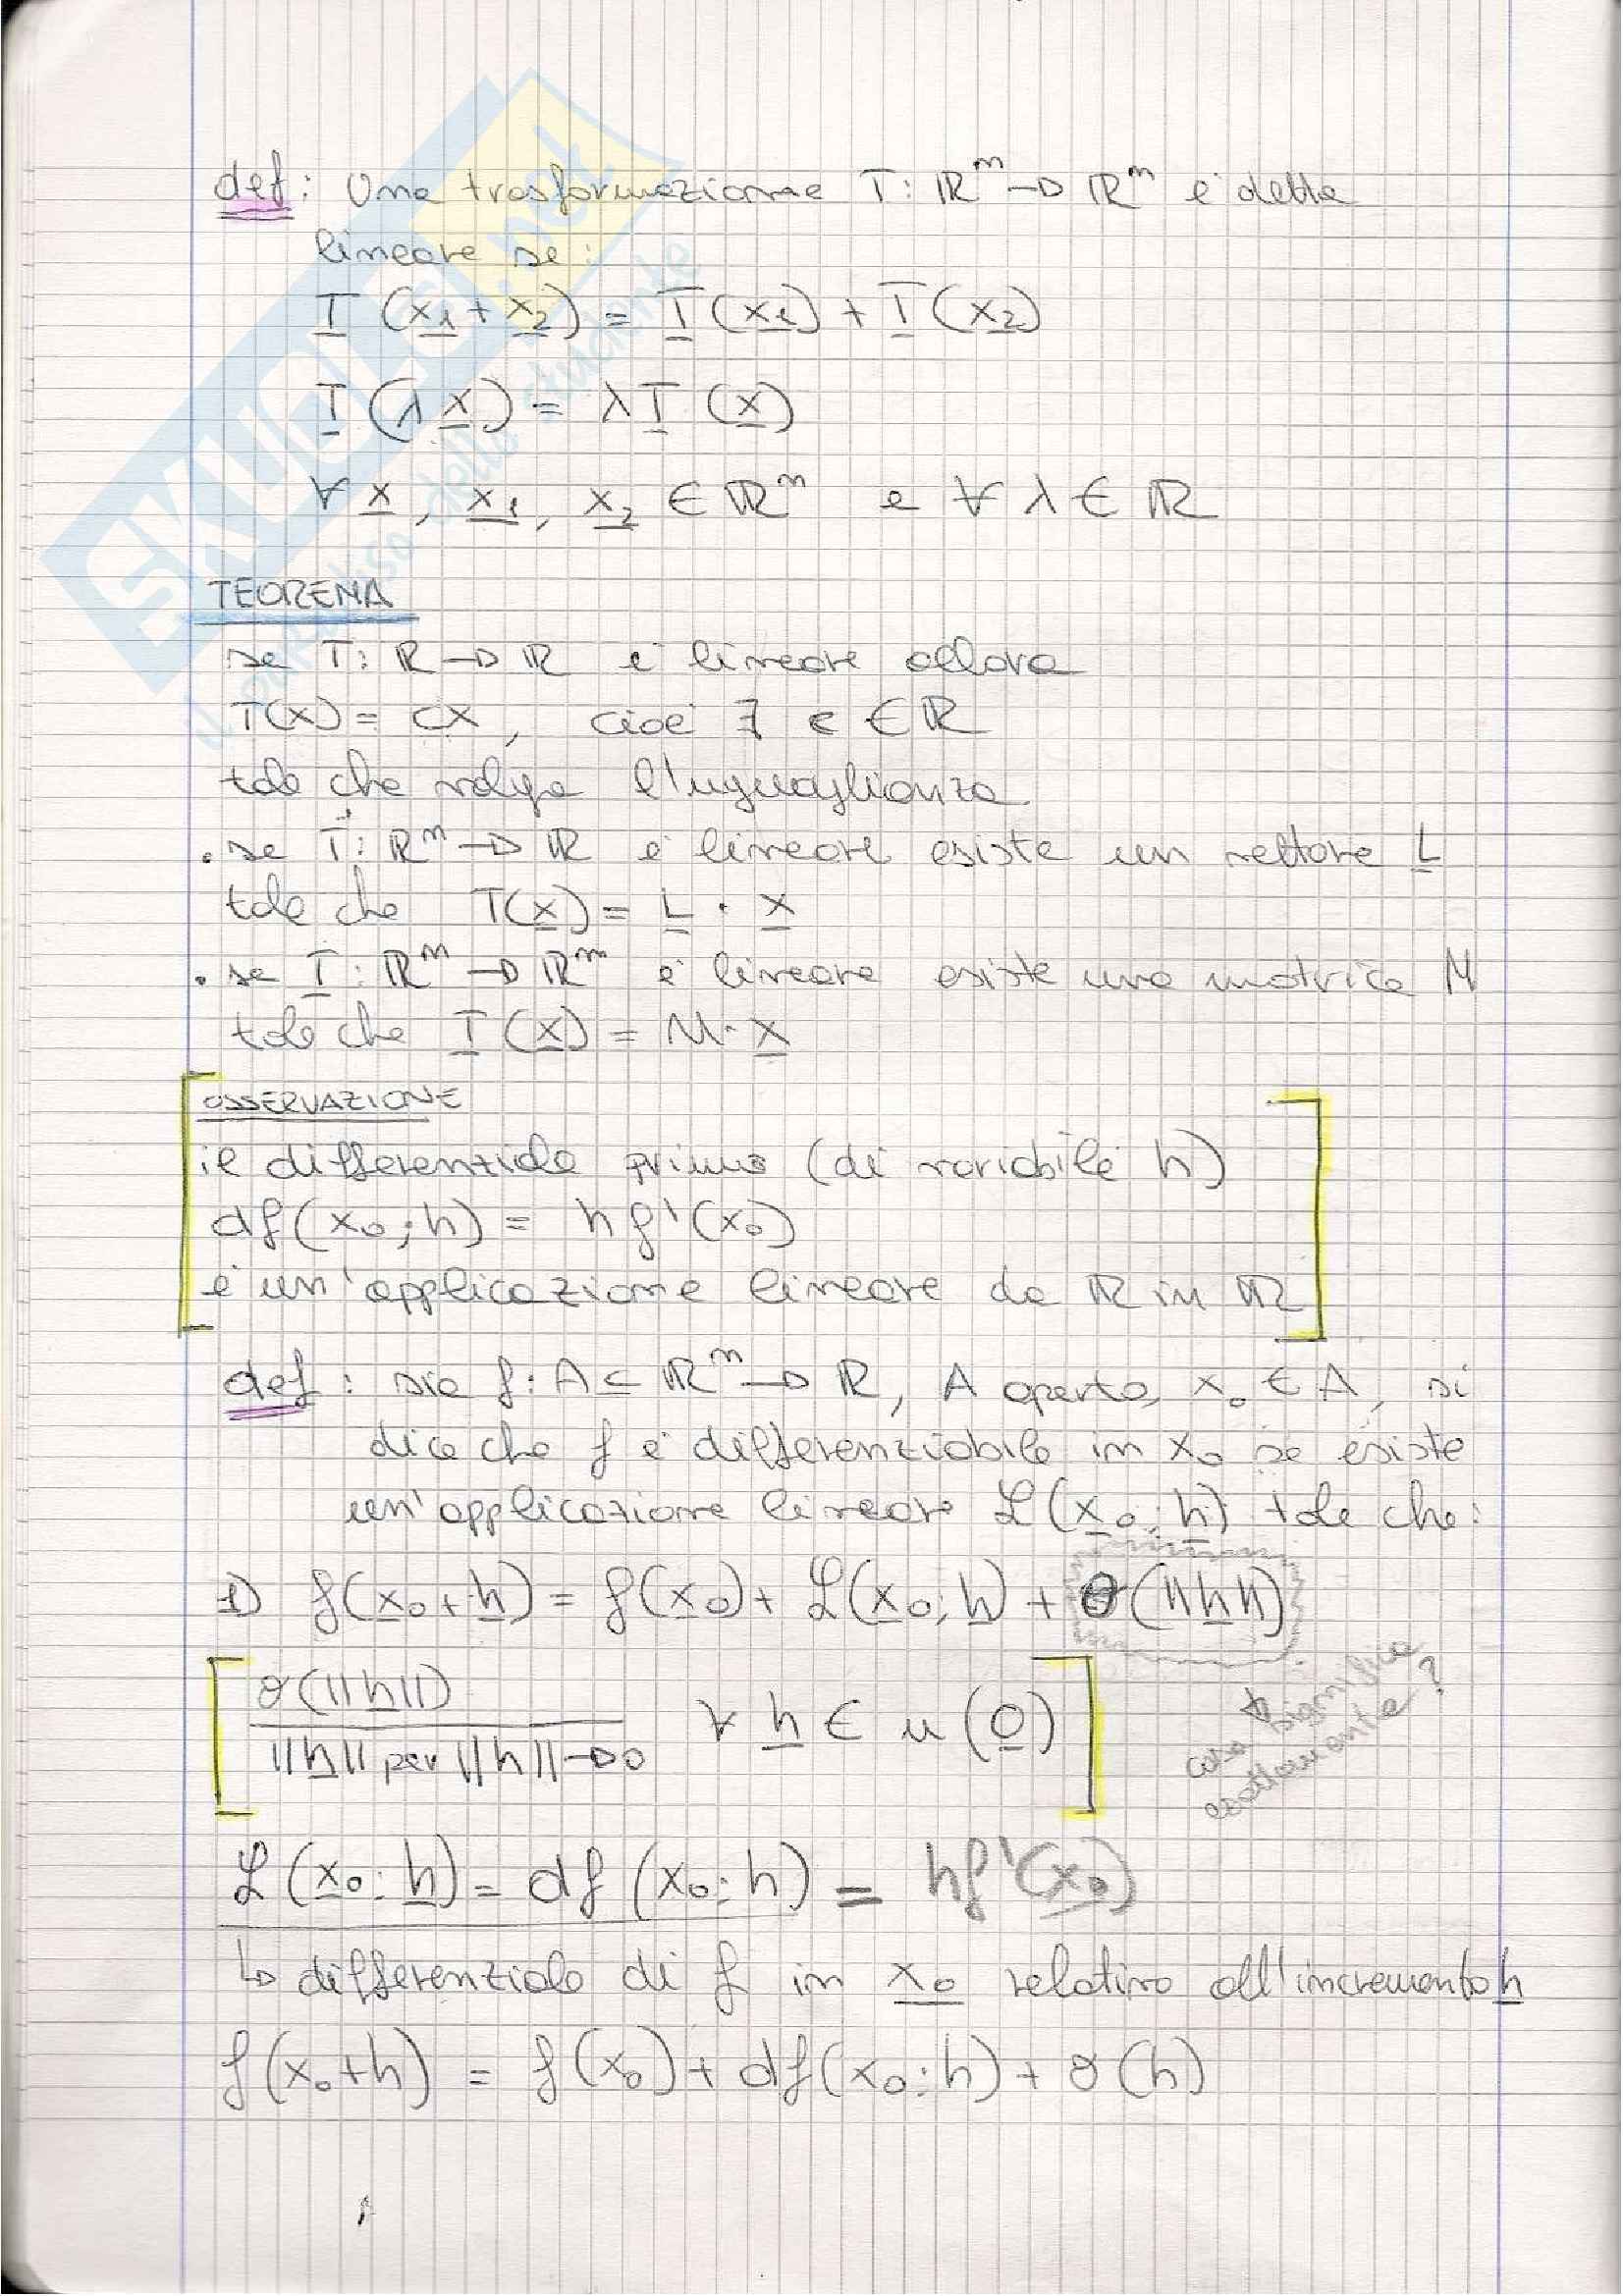 def: Una trasformazione T: ℝᵐ → ℝᵐ è detta
lineare se:
T (x₁ + x₂) = T (x₁) + T (x₂)
T (λ x) = λ T (x)
∀ x, x₁, x₂ ∈ ℝⁿ e ∀ λ ∈ ℝ
TEOREMA
se T: ℝ → ℝ è lineare allora
T(x) = cx, cioè ∃ c ∈ ℝ
tale che valga l'uguaglianza
. se T: ℝⁿ → ℝ è lineare esiste un vettore L
tale che T(x) = L · x
. se T: ℝᵐ → ℝᵐ è lineare esiste una matrice M
tale che T (x) = M · x
OSSERVAZIONE
il differenziale primo (di variabile h)
df(x₀; h) = h f'(x₀)
è un'applicazione lineare da ℝ in ℝ
def: sia f: A ⊆ ℝⁿ → ℝ, A aperto, x₀ ∈ A, si
dice che f è differenziabile in x₀ se esiste
un'applicazione lineare ℒ(x₀; h) tale che:
1) f(x₀ + h) = f(x₀) + ℒ(x₀; h) + o(||h||)
o(||h||)
||h|| per ||h|| → 0 ∀ h ∈ u (0)
cosa significa
esattamente?
ℒ (x₀; h) = df (x₀; h) = hf'(x₀)
↳ differenziale di f in x₀ relativo all'incremento h
f(x₀+h) = f(x₀) + df(x₀; h) + o(h)
SKUOLA.net
il paradiso dello studente